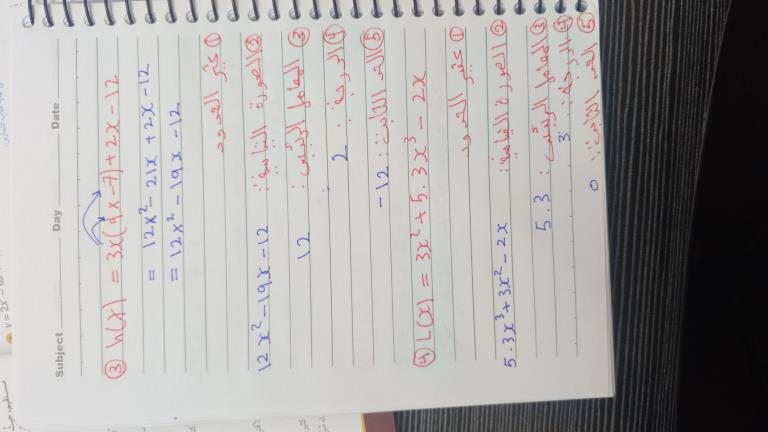 Subject Day Date
③ h(x) = 3x(4x-7)+2x-12
= 12x²-21x+2x-12
= 12x²-19x-12
① كثير الحدود
② الصورة القياسية: 12x²-19x-12
③ المعامل الرئيس: 12
④ الدرجة: 2
⑤ الحد الثابت: -12
④ L(x) = 3x²+5.3x³-2x
① كثير الحدود
② الصورة القياسية: 5.3x³+3x²-2x
③ المعامل الرئيس: 5.3
④ الدرجة: 3
⑤ الحد الثابت: 0